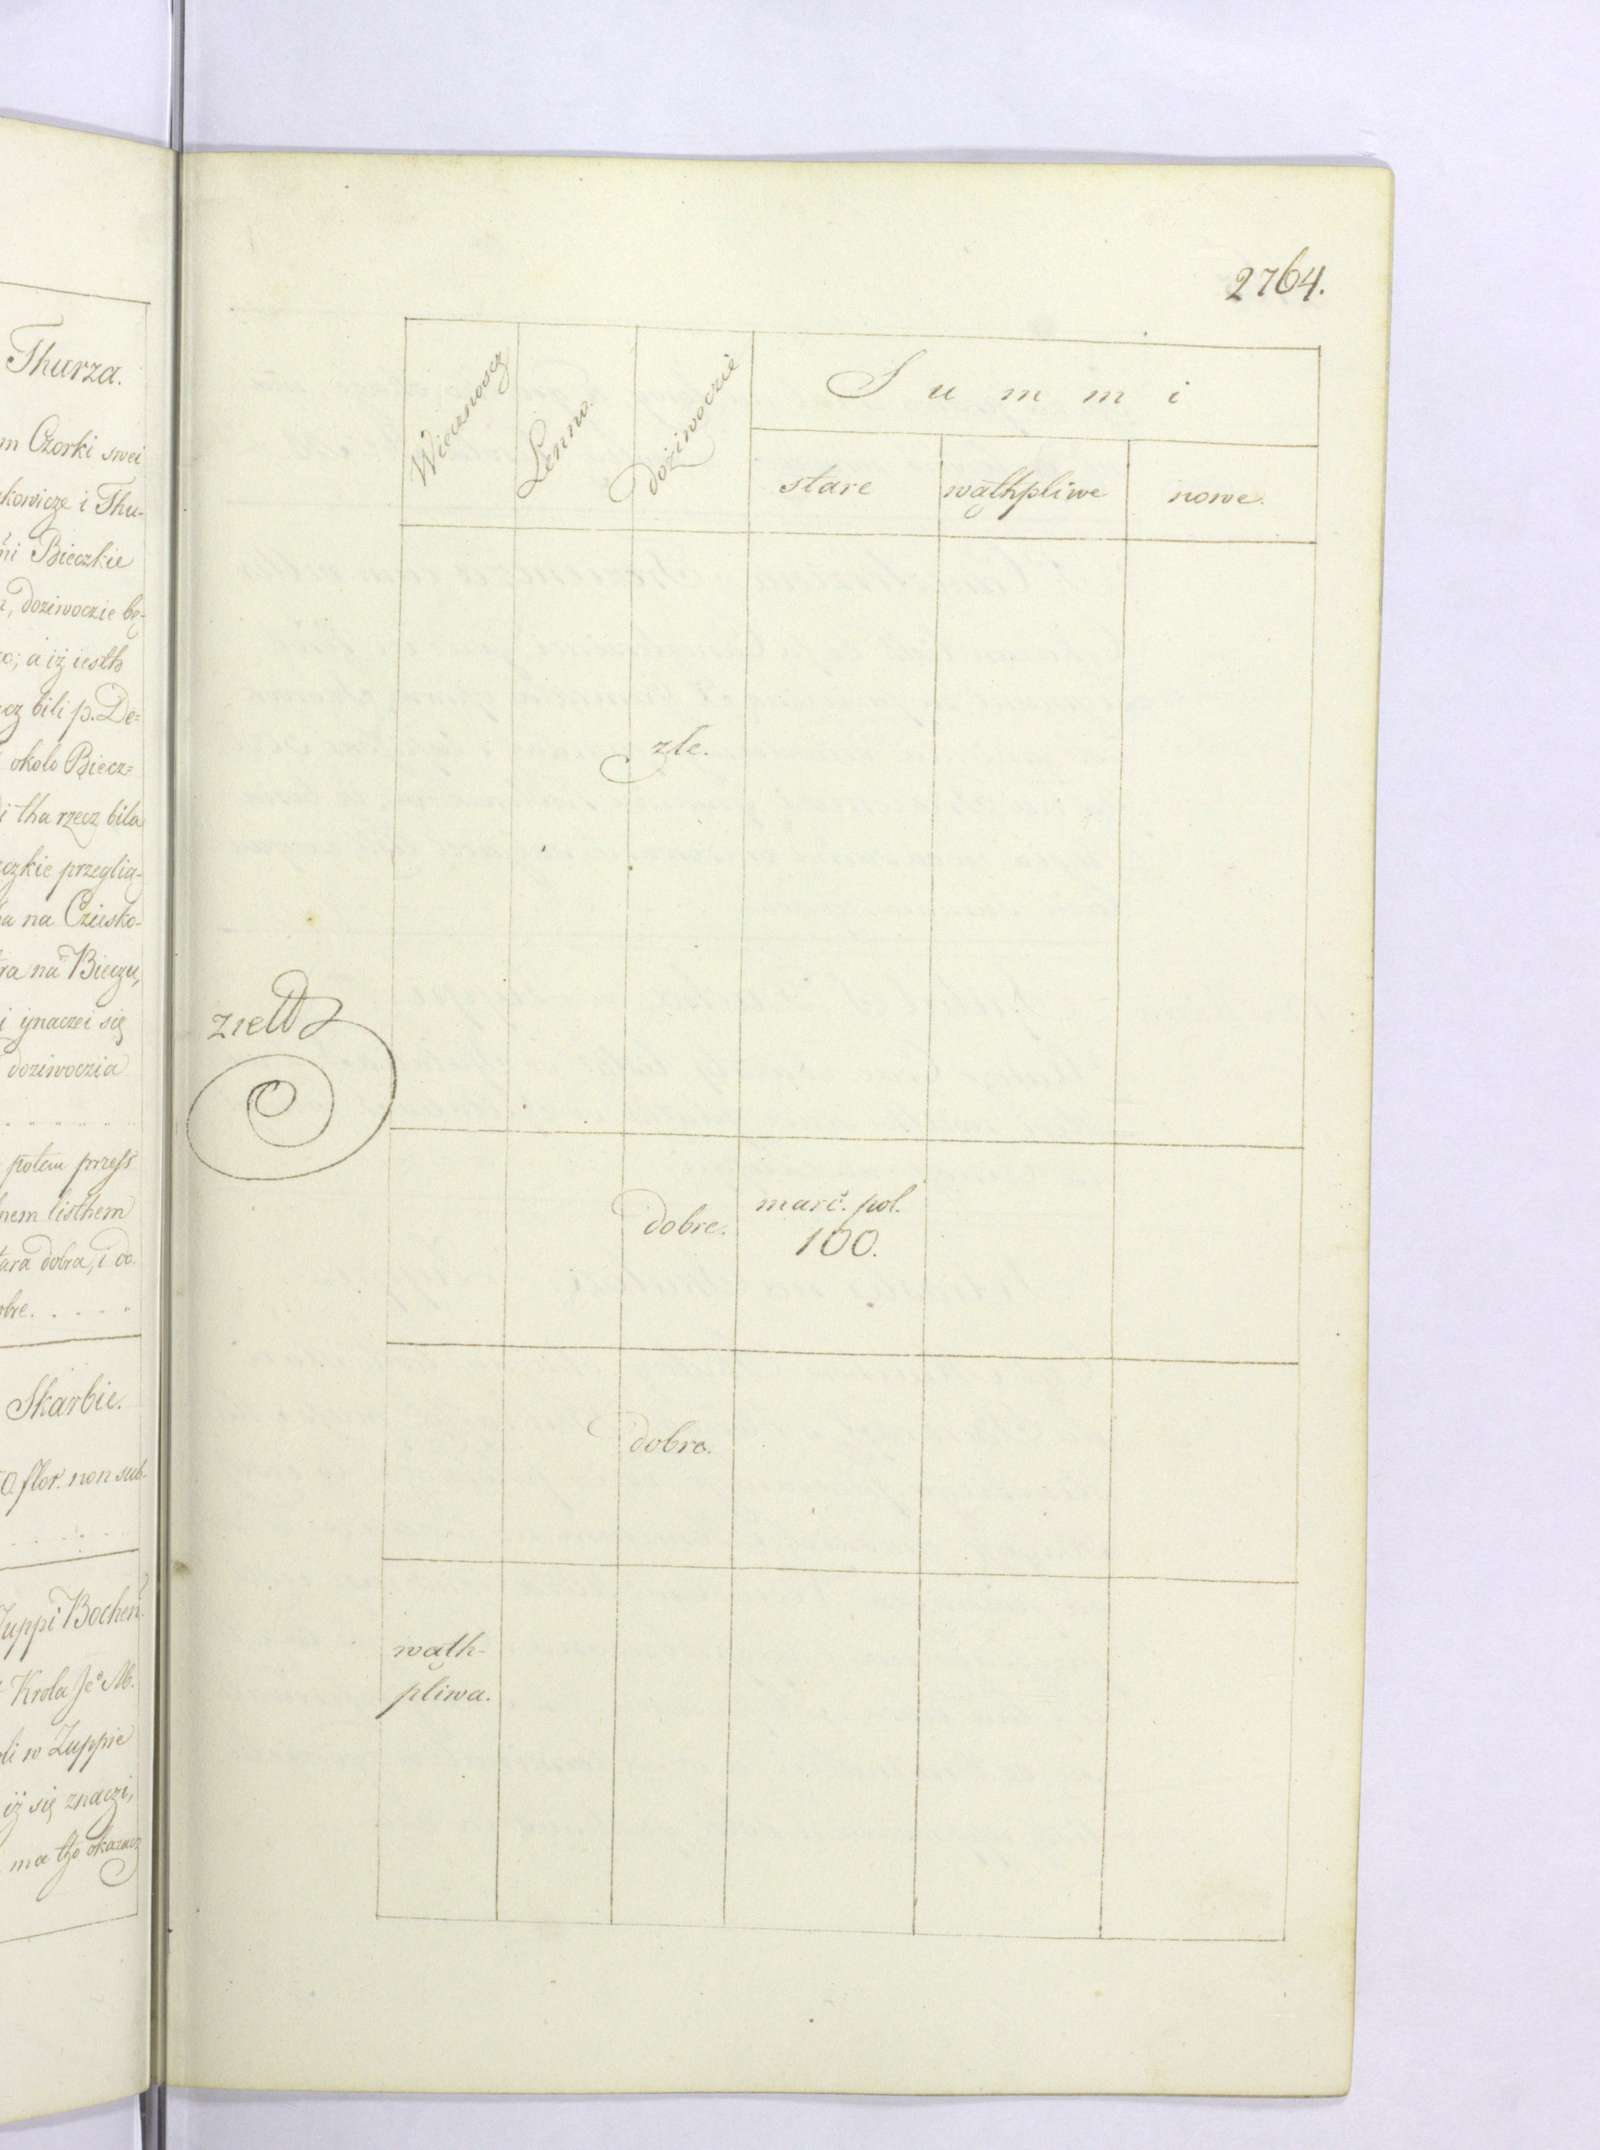 Thurza.
m Czorki swei
kowicze i Thu-
ni Bieczkie
a, doziwoczie bę-
o; a iż iesth
cz bili p. De=
okolo Biecz=
i tha rzecz bila
czkie przeglią-
a na Cziesko-
ra na Bieczu,
i ynaczei się
doziwoczia
potem przess
nem listhem
ara dobra, i do
obre.
Skarbie.
0 flor. non sub-
Zuppi Bochen.
Krola Je° M.
li w Zuppie
iż się znaczi,
ma tho okazacz
2764.
Wiecznoscz
Lenno.
Dożiwoczie
Summi
stare
wąthpliwe
nowe.
złe.
dobre.
marc. pol.
100.
dobre.
wąth-
pliwa.